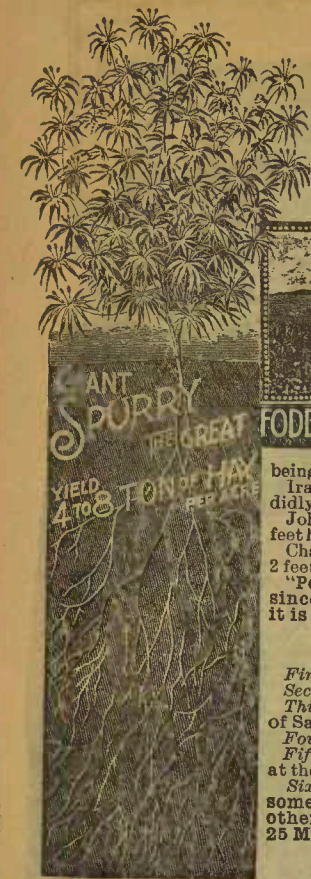 GIANT
SPURRY
THE GREAT
YIELD
4 TO 8 TON OF HAY
PER ACRE
FODE
being
Ira
didly
Joh
feet h
Cha
2 feet
"Pe
since
it is
Fir
Sec
Thi
of Sa
Fou
Fif
at the
Six
some
other
25 M